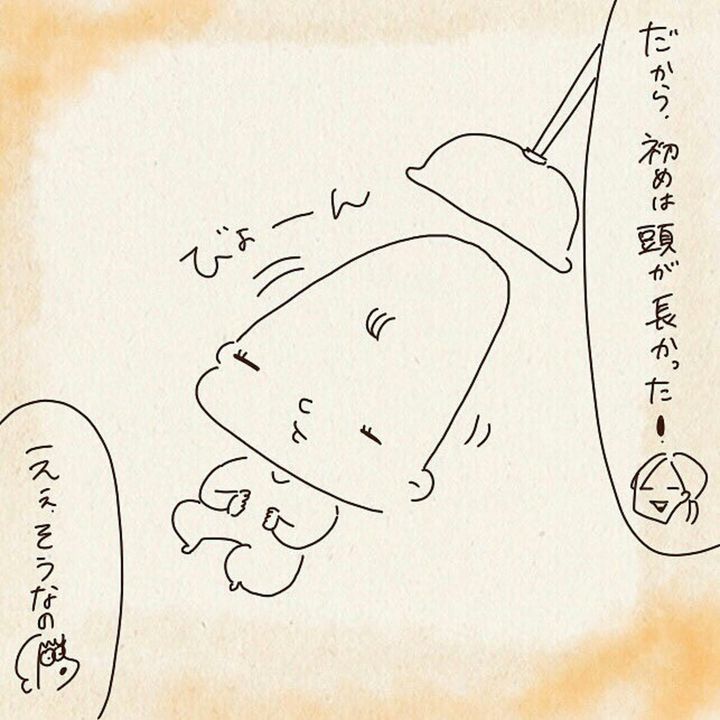 だから、初めは頭が長かった！
びょーん
えぇ、そうなの